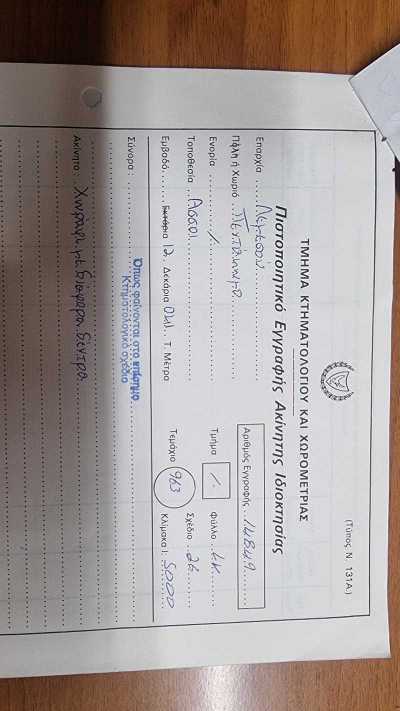 (Τύπος Ν. 131Α.)
ΤΜΗΜΑ ΚΤΗΜΑΤΟΛΟΓΙΟΥ ΚΑΙ ΧΩΡΟΜΕΤΡΙΑΣ
Πιστοποιητικό Εγγραφής Ακίνητης Ιδιοκτησίας
Επαρχία Λεμεσού Αριθμός Εγγραφής
Πόλη ή Χωριό Πεντάκωμο
Ενορία / Τμήμα / Φύλλο
Τοποθεσία Ασσοι Τεμάχιο 963 Σχέδιο 26
Εμβαδό Εκτάρια 12 Δεκάρια 041 Τ. Μέτρα Κλίμακα 1: 5000
Σύνορα Όπως φαίνονται στο επίσημο
Κτηματολογικό σχέδιο
Ακίνητο Χωράφι με διάφορα δέντρα